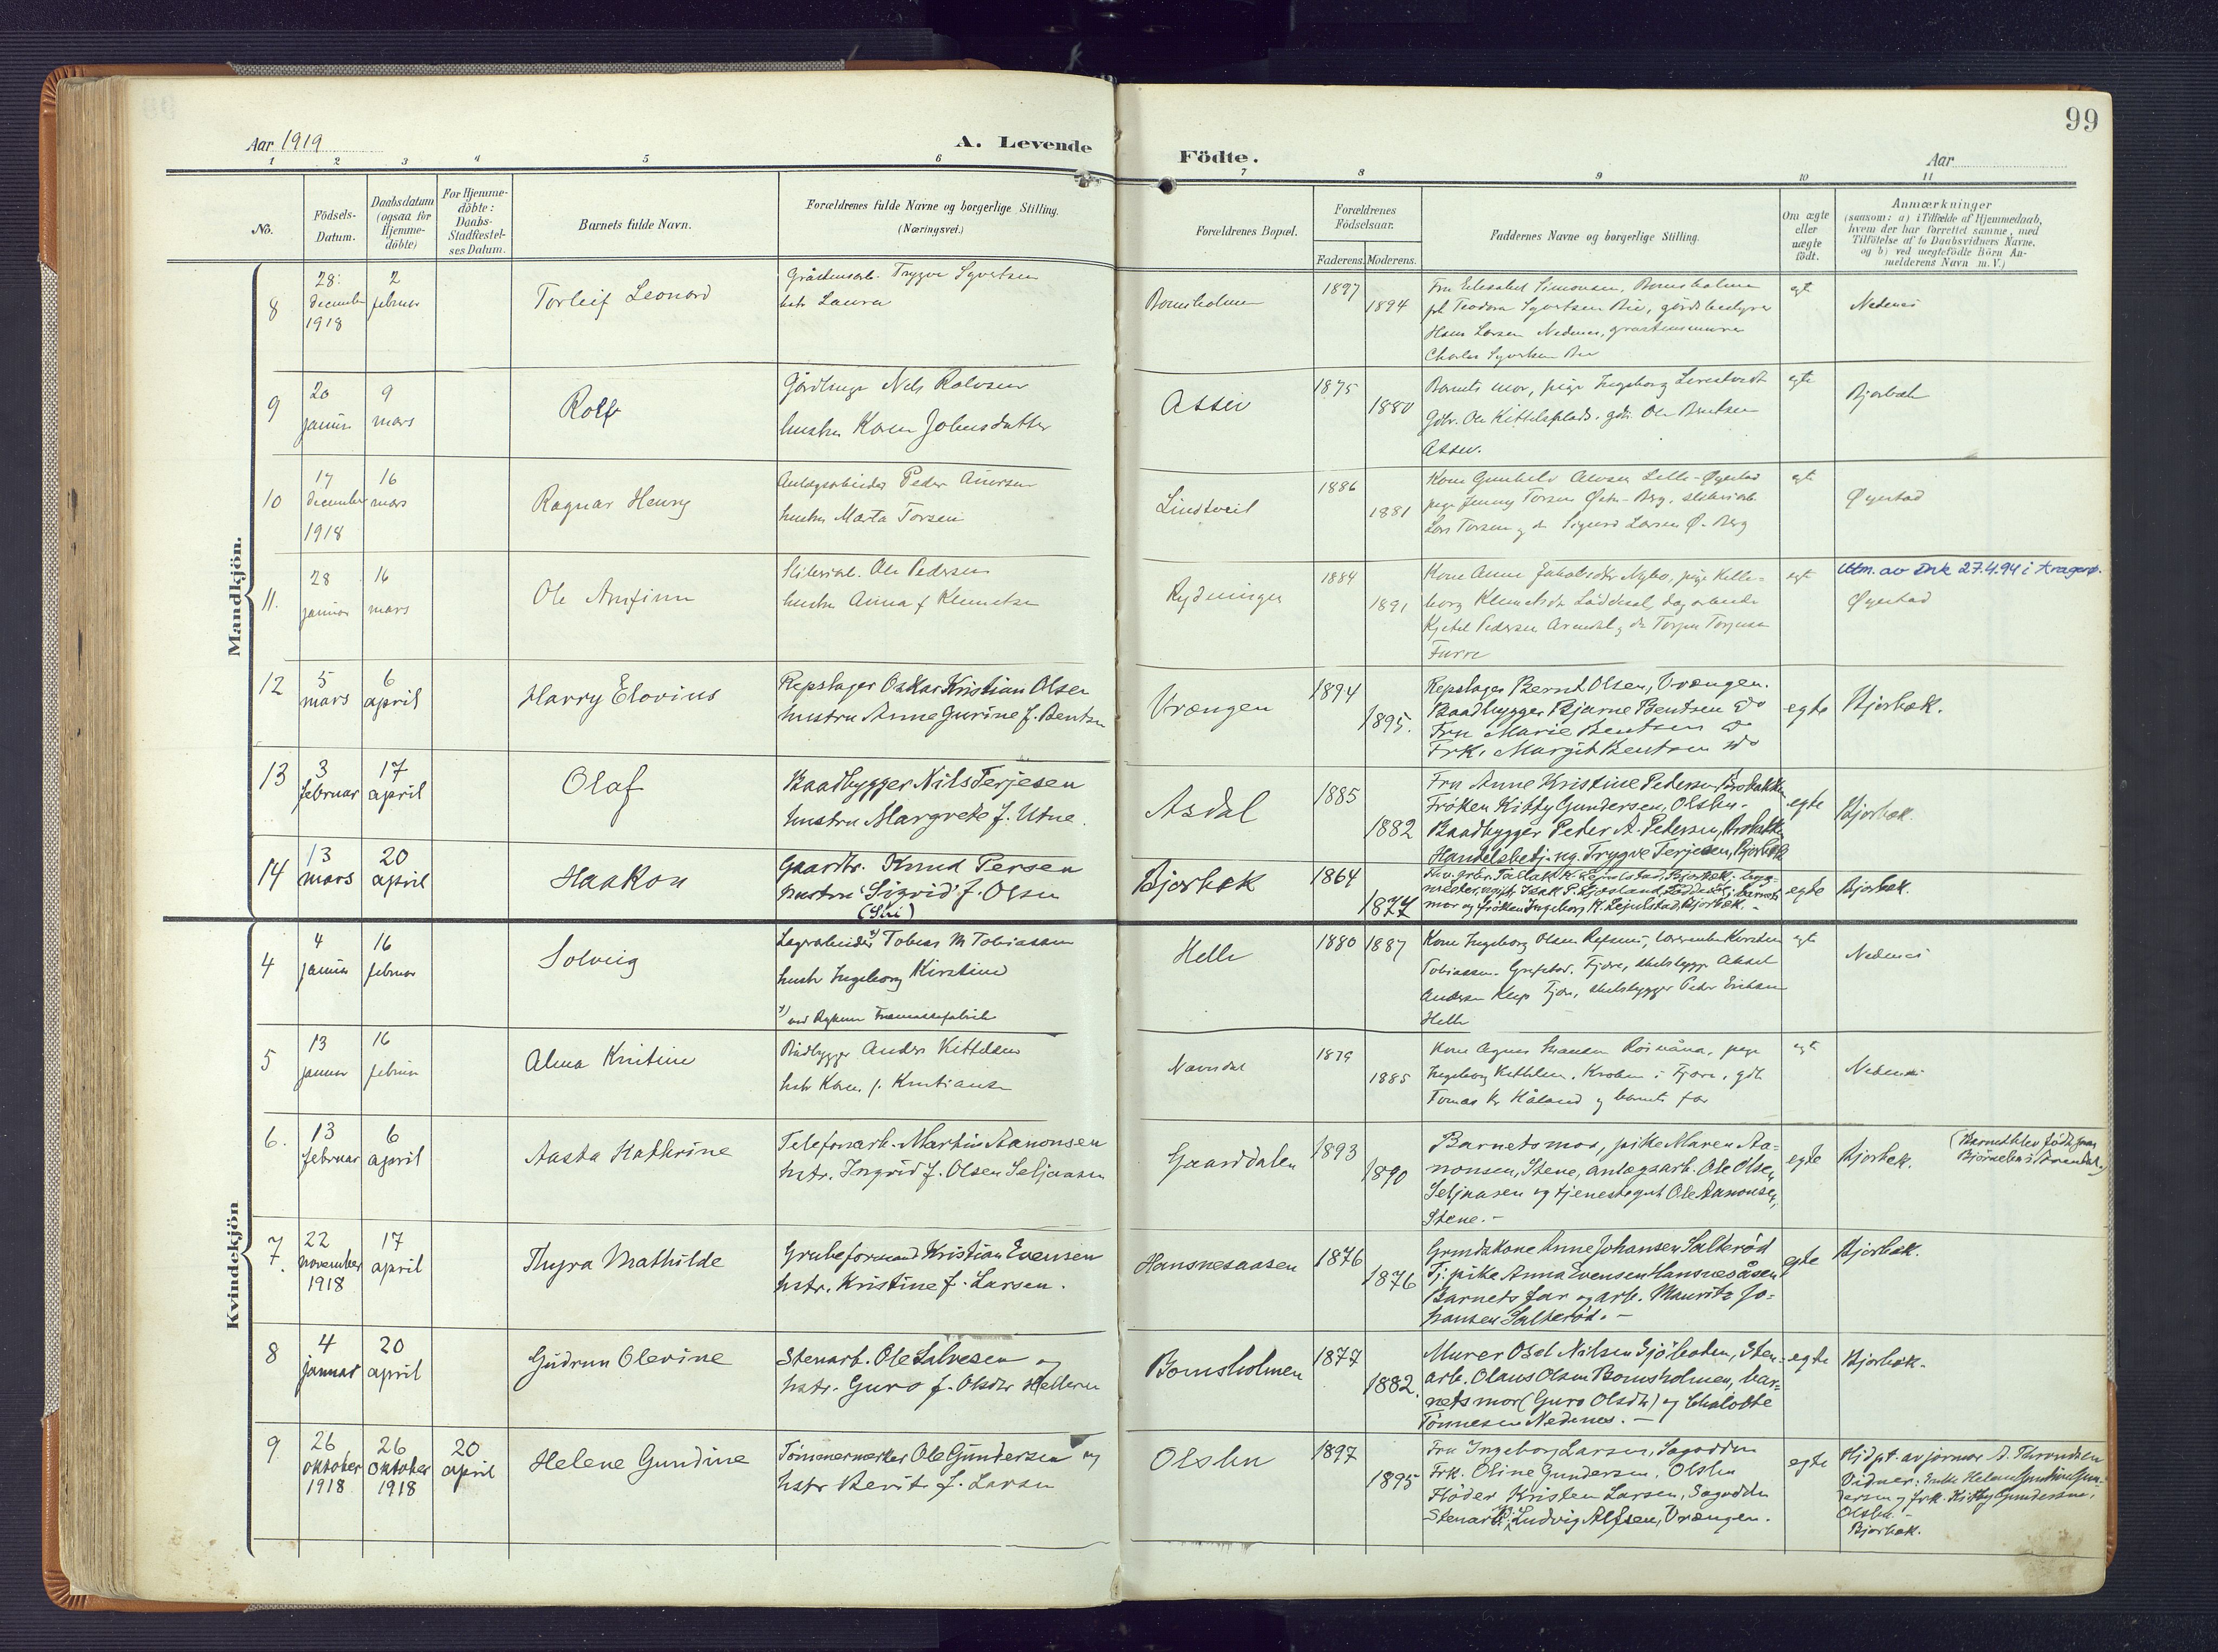 99
Aar 1919
A. Levende
Födte.
Aar
1 2 3 4 5 6 7 8 9 10 11
No.
Födsels-
Datum.
Daabsdatum
(ogsaa for
Hjemme-
döbte)
For Hjemme-
döbte:
Daabs-
Stadfæstel-
ses Datum.
Barnets fulde Navn.
Forældrenes fulde Navne og borgerlige Stilling.
(Næringsvei.)
Forældrenes Bopæl.
Forældrenes
Födselsaar.
Faderens. Moderens.
Faddernes Navne og borgerlige Stilling.
Om ægte
eller
uægte
födt.
Anmærkninger
(saasom: a) i Tilfælde af Hjemmedaab,
hvem der har forrettet samme, med
Tilföielse af to Daabsvidners Navne.
og b) ved uægtefödte Börn An-
melderens Navn m. V.)
Mandkjön.
8
28
december
1918
2
februar
Torleif Leonard
Trygve Syvertsen
hstr Laura
Bomsholmen
1897
1894
Fru Elisabet Simonsen, Bomsholmen
Teodora Syvertsen Bie, gårdsbestyrer
Hans Larsen Nedenes,
Charles Syvertsen Bie
egte
Nedenes
9
20
januar
9
mars
Rolf
Nils Rolvsen
hustru Karen Johnsdatter
Assev
1875
1880
Barnets mor, pige Ingeborg
Gdbr. Ole Kittelsplads. gdr. Ole Bentsen
Assev.
egte
Bjorbæk
10
17
december
1918
16
mars
Ragnar Henry
Anlægsarbeider Peder
hustru Marta Torsen
Lindtveit
1886
1881
Kone Gunhild
pige Jenny Torsen
Lars Torsen og do Sigurd Larsen Ø. Berg
egte
Øyestad
11.
28
januar
16
mars
Ole Arnfinn
Sliberiarb. Ole Pedersen
hustru Anna f. Klemetsen
Rydningen
1884
1891
Kone Anne Jakobsdtr Nybo, pige Kelle-
borg
Kjetel Pedersen Arendal og do Torjus Torjusen
Furre
egte
Utm. av Dnk 27.4.94 i Kragerø.
Øyestad
12
5
mars
6
april
Harry Elovius
Repslager Oskar Kristian Olsen
hustru Anne Gurine f. Bentsen
Vrængen
1894
1895.
Repslager Bernt Olsen, Vrængen.
Baadbygger Bjarne Bentsen do
Fru Marie Bentsen do
Frk. Margit Bentsen do
egte
Bjorbæk.
13
3
februar
17
april
Olaf
Baadbygger Nils Terjesen
hustru Margrete f. Utne.
Asdal
1885
1882
Fru Anne Kristine Pedersen Brobakken
Frøken Kitty Gundersen, Olsbu.
Baadbygger Peder A. Pedersen, Brobakken
Handelsbetj. ug. Trygve Terjesen, Bjorbæk
egte
Bjorbæk.
14
13
mars
20
april
Haakon
Gaardbr. Knud Persen
hustru 'Sigrid' f. Olsen
(Siri)
Bjorbæk
1864
1877
mor og frøken Ingeborg K. Lejulstad, Bjorbæk.
egte
Bjorbæk.
Kvindekjön
4
4
januar
16
februar
Solveig
Lagerarbeider x) Tobias M Tobiassen
hustr Ingeborg Kirstine
x) ved Rykene Træmassefabrik
Helle
1880
1887
Kone Ingeborg Olsen Refsnes,
Tobiassen. Fjære, skibsbygger Aksel
Andersen Fjære, skibsbygger Peder Eriksen
Helle
egte
Nedenes
5
13
januar
16
februar
Alma Kristine
Baadbygger Anders Kittelsen
hstr Karen f. Kristiansen
1879
1885
Kone Agnes Hansen
Ingeborg Kittelsen, i Fjære, gdb
Tomas Kr Håland og barnets far
egte
Nedenes
6.
13
februar
6
april
Aasta Kathrine
Telefonarb. Martin Aanonsen
hstr. Ingrid f. Olsen Seljaasen
Gaarddalen
1893
1890
Barnets mor, pike Maren Aa-
nonsen, Stene, anlægsarb. Ole Olsen,
Seljaasen og tjenestegut Ole Aanonsen,
Stene.-
egte
Bjorbæk.
(Barnet blev født
i Arendal.)
7.
22
november
1918
17
april
Thyra Mathilde
Grubeformand Kristian Evensen
hstr. Kristine f. Larsen.
Hansnesaasen
1876
1876
Kone Anne Johansen Salterød
Tj. pike Anna Evensen Hansnesåsen
Barnets far og arb. Mauritz Jo-
hansen Salterød.-
egte
Bjorbæk.
8
4
januar
20
april
Gudrun Olevine
Stenarb. Ole Salvesen og
hstr. Guro f. Olsdtr Helleren
Bomsholmen
1877
1882.
Murer Osel Nilsen Sjøboden, Sten-
arb. Olaus Olsen Bomsholmen, bar-
nets mor (Guro Olsdtr) og Chalotte
Tønnesen Nedenes.-
egte
Bjorbæk.
9
26
oktober
1918
26
oktober
1918
20
april
Helene Gundine
Tømmermerker Ole Gundersen og
hstr Berit f. Larsen
Olsbu
1897
1895
Fru Ingeborg Larsen, Sagodden
Frk. Oline Gundersen, Olsbu
Fløder Kristen Larsen, Sagodden
Stenarb. Ludvig Alfsen, Vrængen.
egte
Hjdpt. av jormor A. Throndsen
Vidner: Enke Helene Gundine Gun-
dersen og frk. Kitty Gundersen,
Olsbu.-
Bjorbæk.